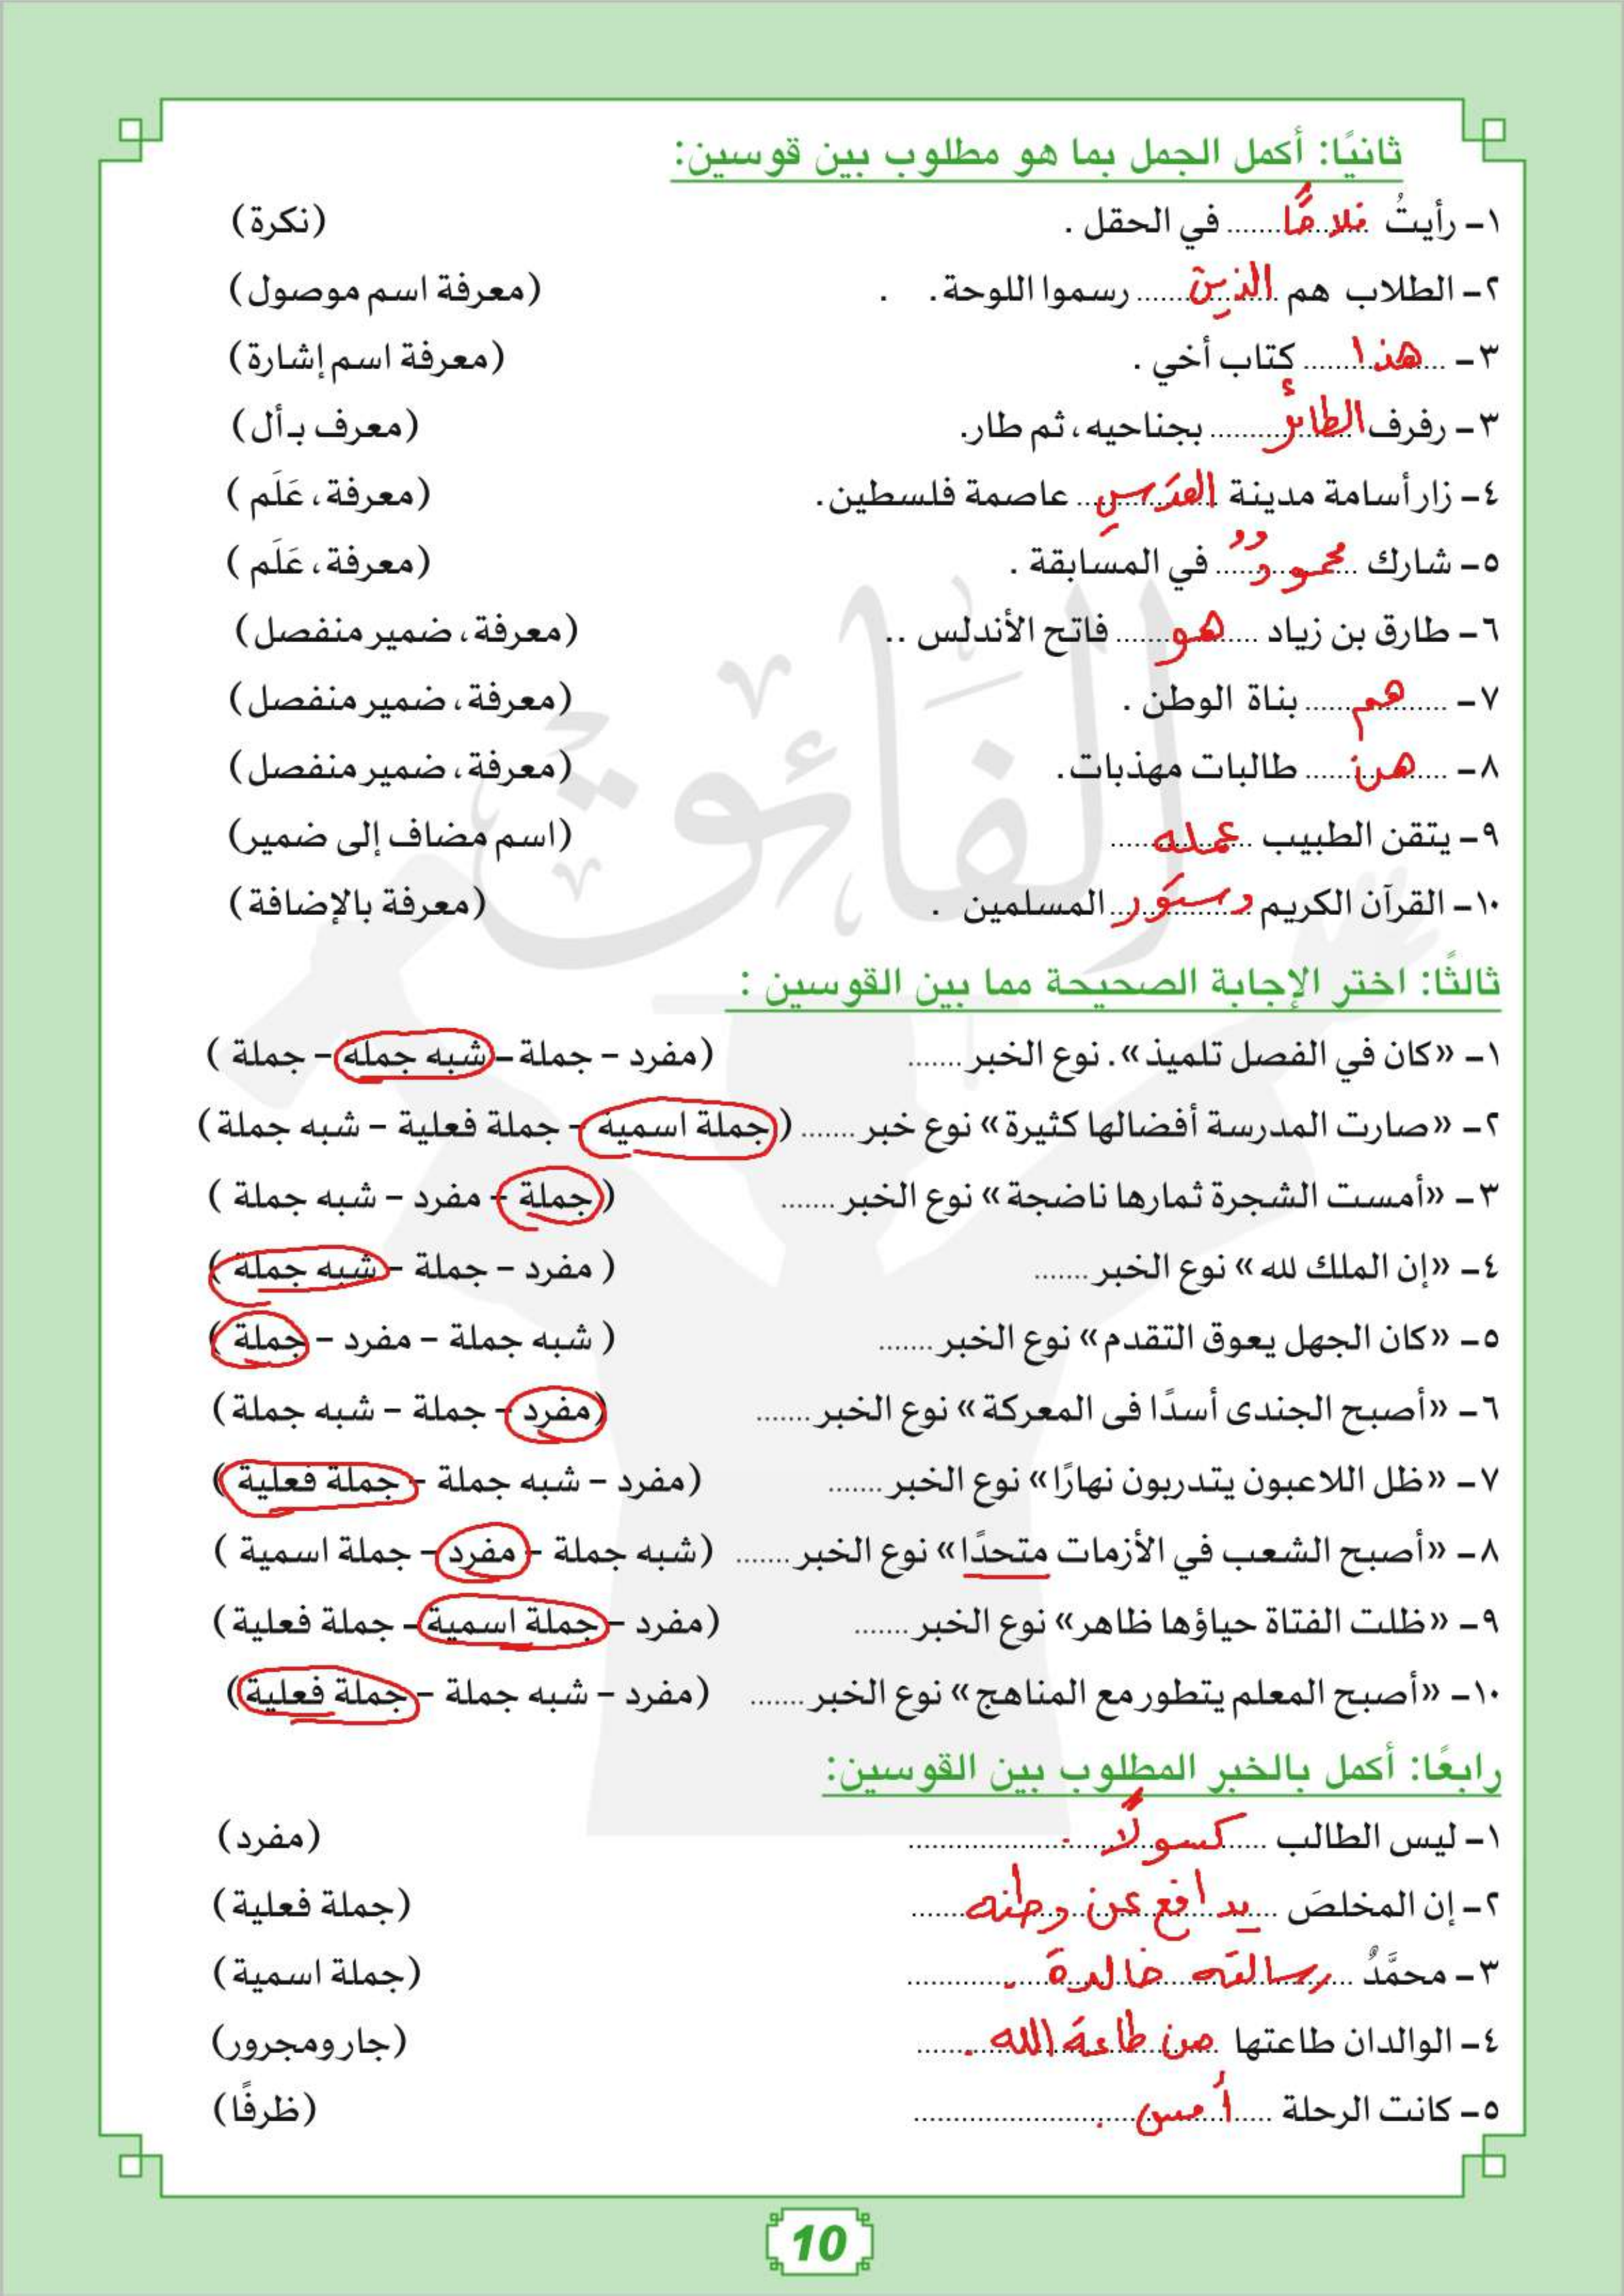 ثانيًا: أكمل الجمل بما هو مطلوب بين قوسين:
١- رأيتُ فلاحًا في الحقل . (نكرة)
٢- الطلاب هم الذين رسموا اللوحة. . (معرفة اسم موصول)
٣- هذا كتاب أخي . (معرفة اسم إشارة)
٣- رفرف الطائرُ بجناحيه، ثم طار. (معرف بـأل)
٤- زار أسامة مدينة القدسِ عاصمة فلسطين. (معرفة، عَلَم )
٥- شارك محمودٌ في المسابقة . (معرفة، عَلَم )
٦- طارق بن زياد هو فاتح الأندلس .. (معرفة، ضمير منفصل)
٧- هم بناة الوطن . (معرفة، ضمير منفصل)
٨- هن طالبات مهذبات. (معرفة، ضمير منفصل)
٩- يتقن الطبيب عمله (اسم مضاف إلى ضمير)
١٠- القرآن الكريم دستور المسلمين . (معرفة بالإضافة)
ثالثًا: اختر الإجابة الصحيحة مما بين القوسين :
١- «كان في الفصل تلميذ». نوع الخبر ....... (مفرد - جملة - شبه جملة - جملة )
٢- «صارت المدرسة أفضالها كثيرة» نوع خبر ....... (جملة اسمية - جملة فعلية - شبه جملة)
٣- «أمست الشجرة ثمارها ناضجة» نوع الخبر ....... (جملة - مفرد - شبه جملة )
٤- «إن الملك لله» نوع الخبر ....... ( مفرد - جملة - شبه جملة )
٥- «كان الجهل يعوق التقدم» نوع الخبر ....... ( شبه جملة - مفرد - جملة )
٦- «أصبح الجندى أسدًا فى المعركة» نوع الخبر ....... (مفرد - جملة - شبه جملة)
٧- «ظل اللاعبون يتدربون نهارًا» نوع الخبر ....... (مفرد - شبه جملة - جملة فعلية )
٨- «أصبح الشعب في الأزمات متحدًا» نوع الخبر ....... (شبه جملة - مفرد - جملة اسمية )
٩- «ظلت الفتاة حياؤها ظاهر» نوع الخبر ....... (مفرد - جملة اسمية - جملة فعلية)
١٠- «أصبح المعلم يتطور مع المناهج» نوع الخبر ....... (مفرد - شبه جملة - جملة فعلية)
رابعًا: أكمل بالخبر المطلوب بين القوسين:
١- ليس الطالب كسولًا . (مفرد)
٢- إن المخلصَ يدافع عن وطنه (جملة فعلية)
٣- محمَّدٌ رسالته خالدة . (جملة اسمية)
٤- الوالدان طاعتها من طاعة الله . (جار ومجرور)
٥- كانت الرحلة أمس . (ظرفًا)
الفائق
10